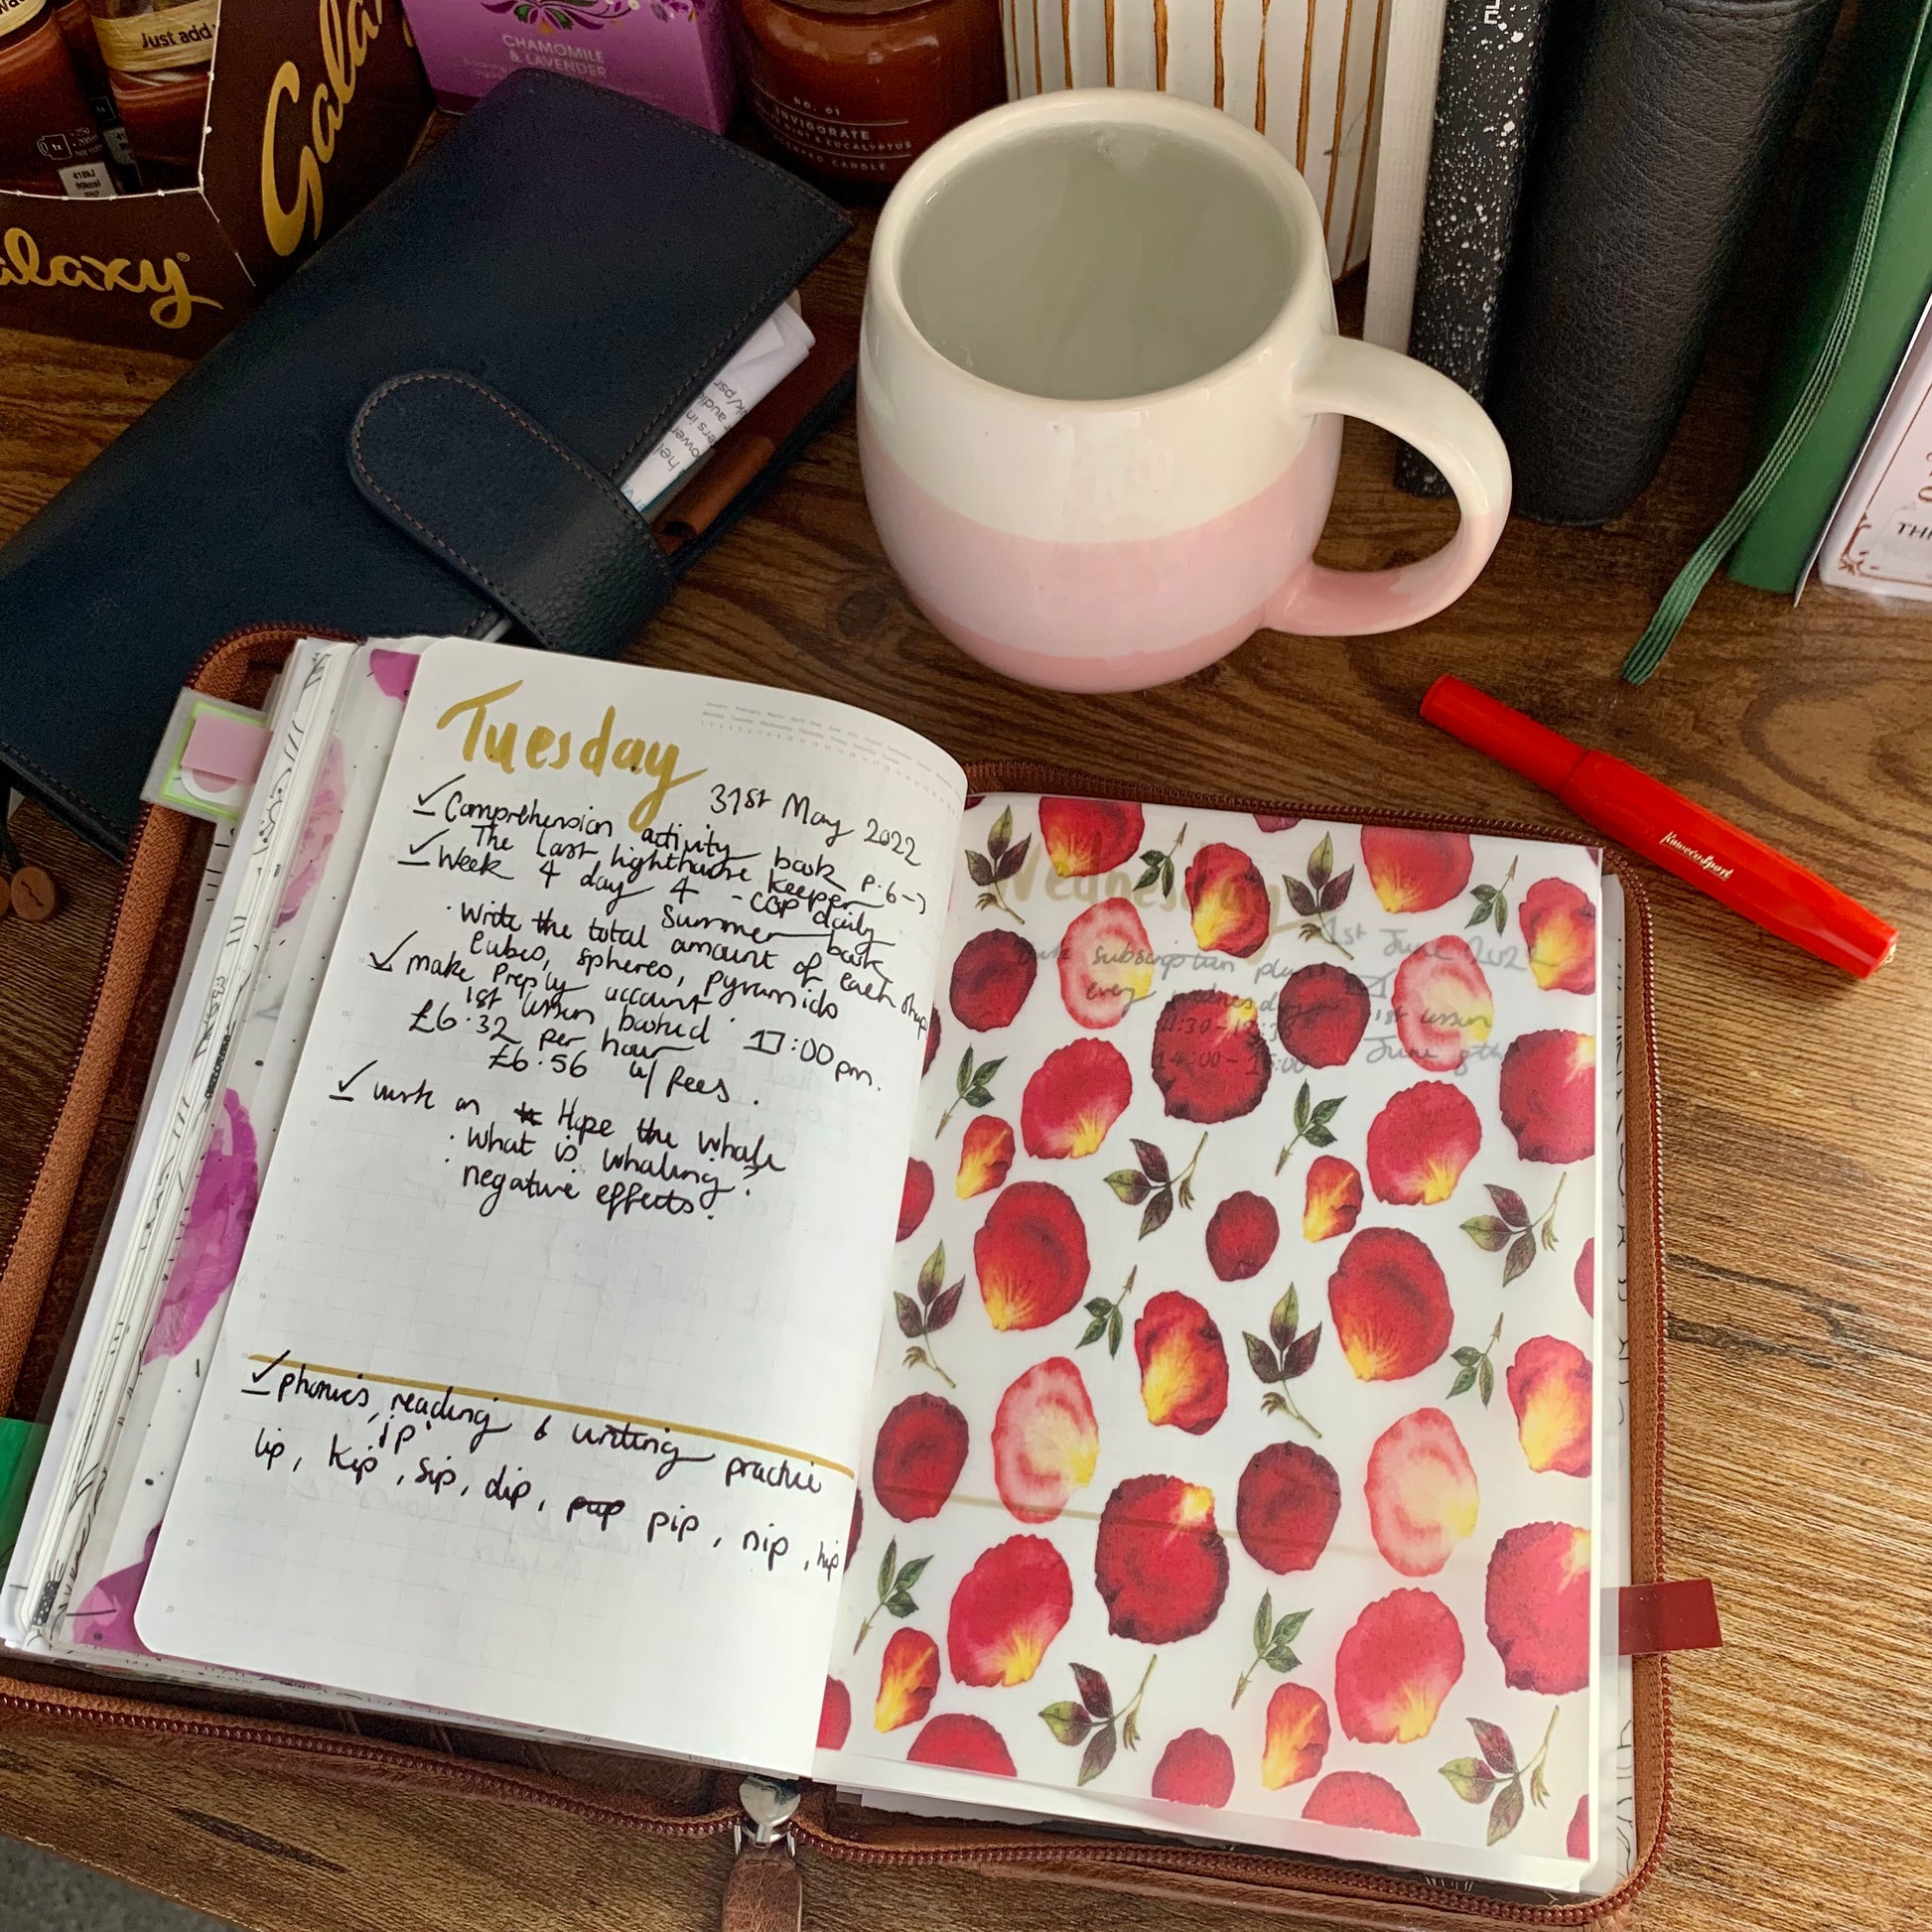 Just add
Galaxy
CHAMOMILE
& LAVENDER
NO. 01
INVIGORATE
EUCALYPTUS
CANDLE
Tuesday
31st May 2022
Comprehension activity book
The Last lighthouse keeper p.6→
Week 4 day 4 - CGP daily
Summer book
· Write the total amount of each shape
Cubes, spheres, pyramids
make Preply account
1st lesson booked 17:00pm.
£6.32 per hour
£6.56 w/ fees.
work on Hope the whale
· What is whaling?
· negative effects?
phonics, reading & writing practice
'ip'
lip, kip, sip, dip, pup pip, nip, hip
Wednesday
1st June 2022
subscription plan
every wednesday
1st lesson
14:00-15:00 June 8th
KawecoSport